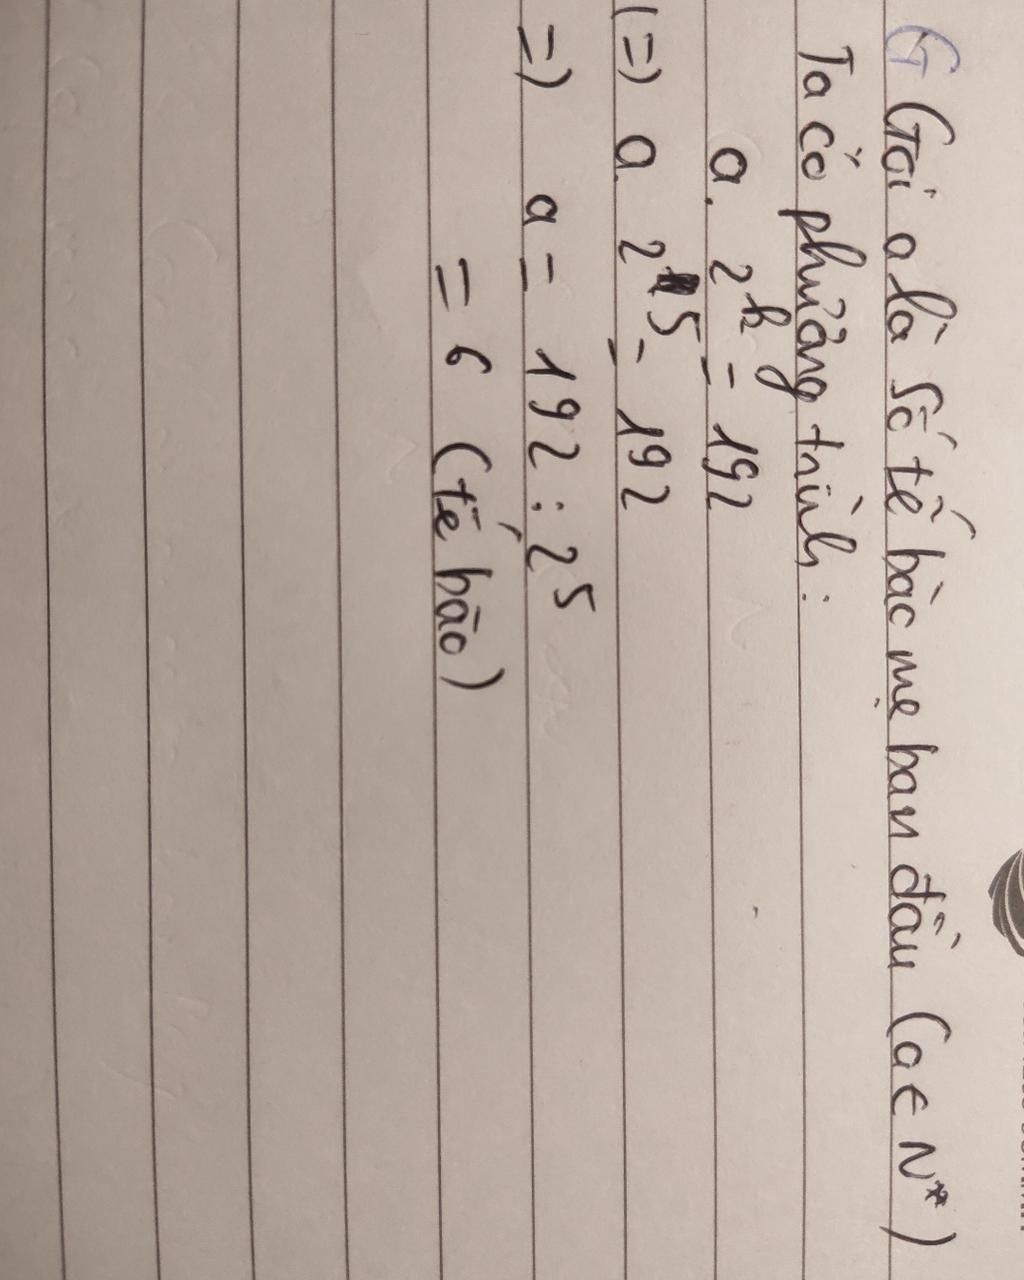 G Gọi a là số tế bào mẹ ban đầu (a ∈ N*)
Ta có phương trình:
a. 2^k = 192
(=) a. 2^5 = 192
=) a = 192 : 2^5
= 6 (tế bào)